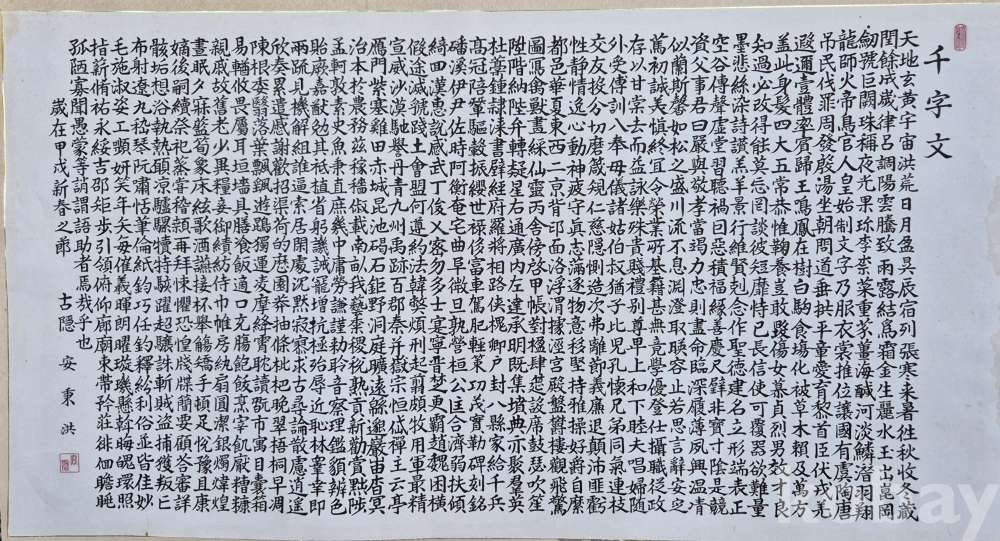 千字文
天地玄黃宇宙洪荒日月盈昃辰宿列張寒来暑往秋收冬藏
閏餘成歲律呂調陽雲騰致雨露結爲霜金生麗水玉出崑岡
劒號巨闕珠稱夜光果珍李柰菜重芥薑海鹹河淡鱗潛羽翔
龍師火帝鳥官人皇始制文字乃服衣裳推位讓國有虞陶唐
吊民伐罪周發殷湯坐朝問道垂拱平章愛育黎首臣伏戎羌
遐邇壹體率賓歸王鳴鳳在樹白駒食場化被草木賴及萬方
蓋此身髮四大五常恭惟鞠養豈敢毁傷女慕貞烈男效才良
知過必改得能莫忘罔談彼短靡恃己長信使可覆器欲難量
墨悲絲染詩讚羔羊景行維賢剋念作聖德建名立形端表正
空谷傳聲虛堂習聽禍因惡積福緣善慶尺璧非寶寸陰是競
資父事君曰嚴與敬孝當竭力忠則盡命臨深履薄夙興温凊
似蘭斯馨如松之盛川流不息淵澄取暎容止若思言辭安定
篤初誠美慎終宜令榮業所基籍甚無竟學優登仕攝職從政
存以甘棠去而益詠樂殊貴賤禮别尊卑上和下睦夫唱婦随
外受傅訓入奉母儀諸姑伯叔猶子比兒孔懷兄弟同氣連枝
交友投分切磨箴規仁慈隱惻造次弗離節義廉退顛沛匪虧
性静情逸心動神疲守真志滿逐物意移堅持雅操好爵自縻
都邑華夏東西二京背邙面洛浮渭據涇宮殿盤鬱樓觀飛驚
圖寫禽獸畫綵仙靈丙舍傍啓甲帳對楹肆筵設席鼓瑟吹笙
陞階納陛弁轉疑星右通廣内左達承明既集墳典亦聚羣英
杜藁鍾隸漆書壁經府羅將相路俠槐卿户封八縣家給千兵
高冠陪輦驅轂振纓世祿侈富車駕肥輕策功茂實勒碑刻銘
磻溪伊尹佐時阿衡奄宅曲阜微旦孰營桓公匡合濟弱扶傾
綺回漢惠說感武丁俊乂密勿多士寔寧晉楚更霸趙魏困橫
假途滅虢踐土會盟何遵約法韓弊煩刑起翦頗牧用軍最精
宣威沙漠馳譽丹青九州禹跡百郡秦并嶽宗恒岱禪主云亭
雁門紫塞鷄田赤城昆池碣石鉅野洞庭曠遠緜邈巖岫杳冥
治本於農務茲稼穡俶載南畝我藝黍稷税熟貢新勸賞黜陟
孟軻敦素史魚秉直庶幾中庸勞謙謹勅聆音察理鑑貌辨色
貽厥嘉猷勉其祗植省躬譏誡寵增抗極殆辱近恥林皐幸即
兩疏見機解組誰逼索居閑處沉默寂寥求古尋論散慮逍遥
欣奏累遣慼謝歡招渠荷的歷園莽抽條枇杷晚翠梧桐早凋
陳根委翳落葉飄飖遊鵾獨運凌摩絳霄耽讀翫市寓目囊箱
易輶攸畏屬耳垣墻具膳飡飯適口充腸飽飫烹宰飢厭糟糠
親戚故舊老少異糧妾御績紡侍巾帷房紈扇圓潔銀燭煒煌
晝眠夕寐藍筍象床絃歌酒讌接杯擧觴矯手頓足悅豫且康
嫡後嗣續祭祀蒸嘗稽顙再拜悚懼恐惶牋牒簡要顧答審詳
骸垢想浴執熱願涼驢騾犢特駭躍超驤誅斬賊盜捕獲叛亡
布射遼丸嵇琴阮嘯恬筆倫紙鈞巧任釣釋紛利俗並皆佳妙
毛施淑姿工嚬妍笑年矢每催羲暉朗曜璇璣懸斡晦魄環照
指薪脩祐永綏吉邵矩步引領俯仰廊廟束帶矜莊徘徊瞻眺
孤陋寡聞愚蒙等誚謂語助者焉哉乎也
歲在甲戌新春之節 古隱 安秉洪